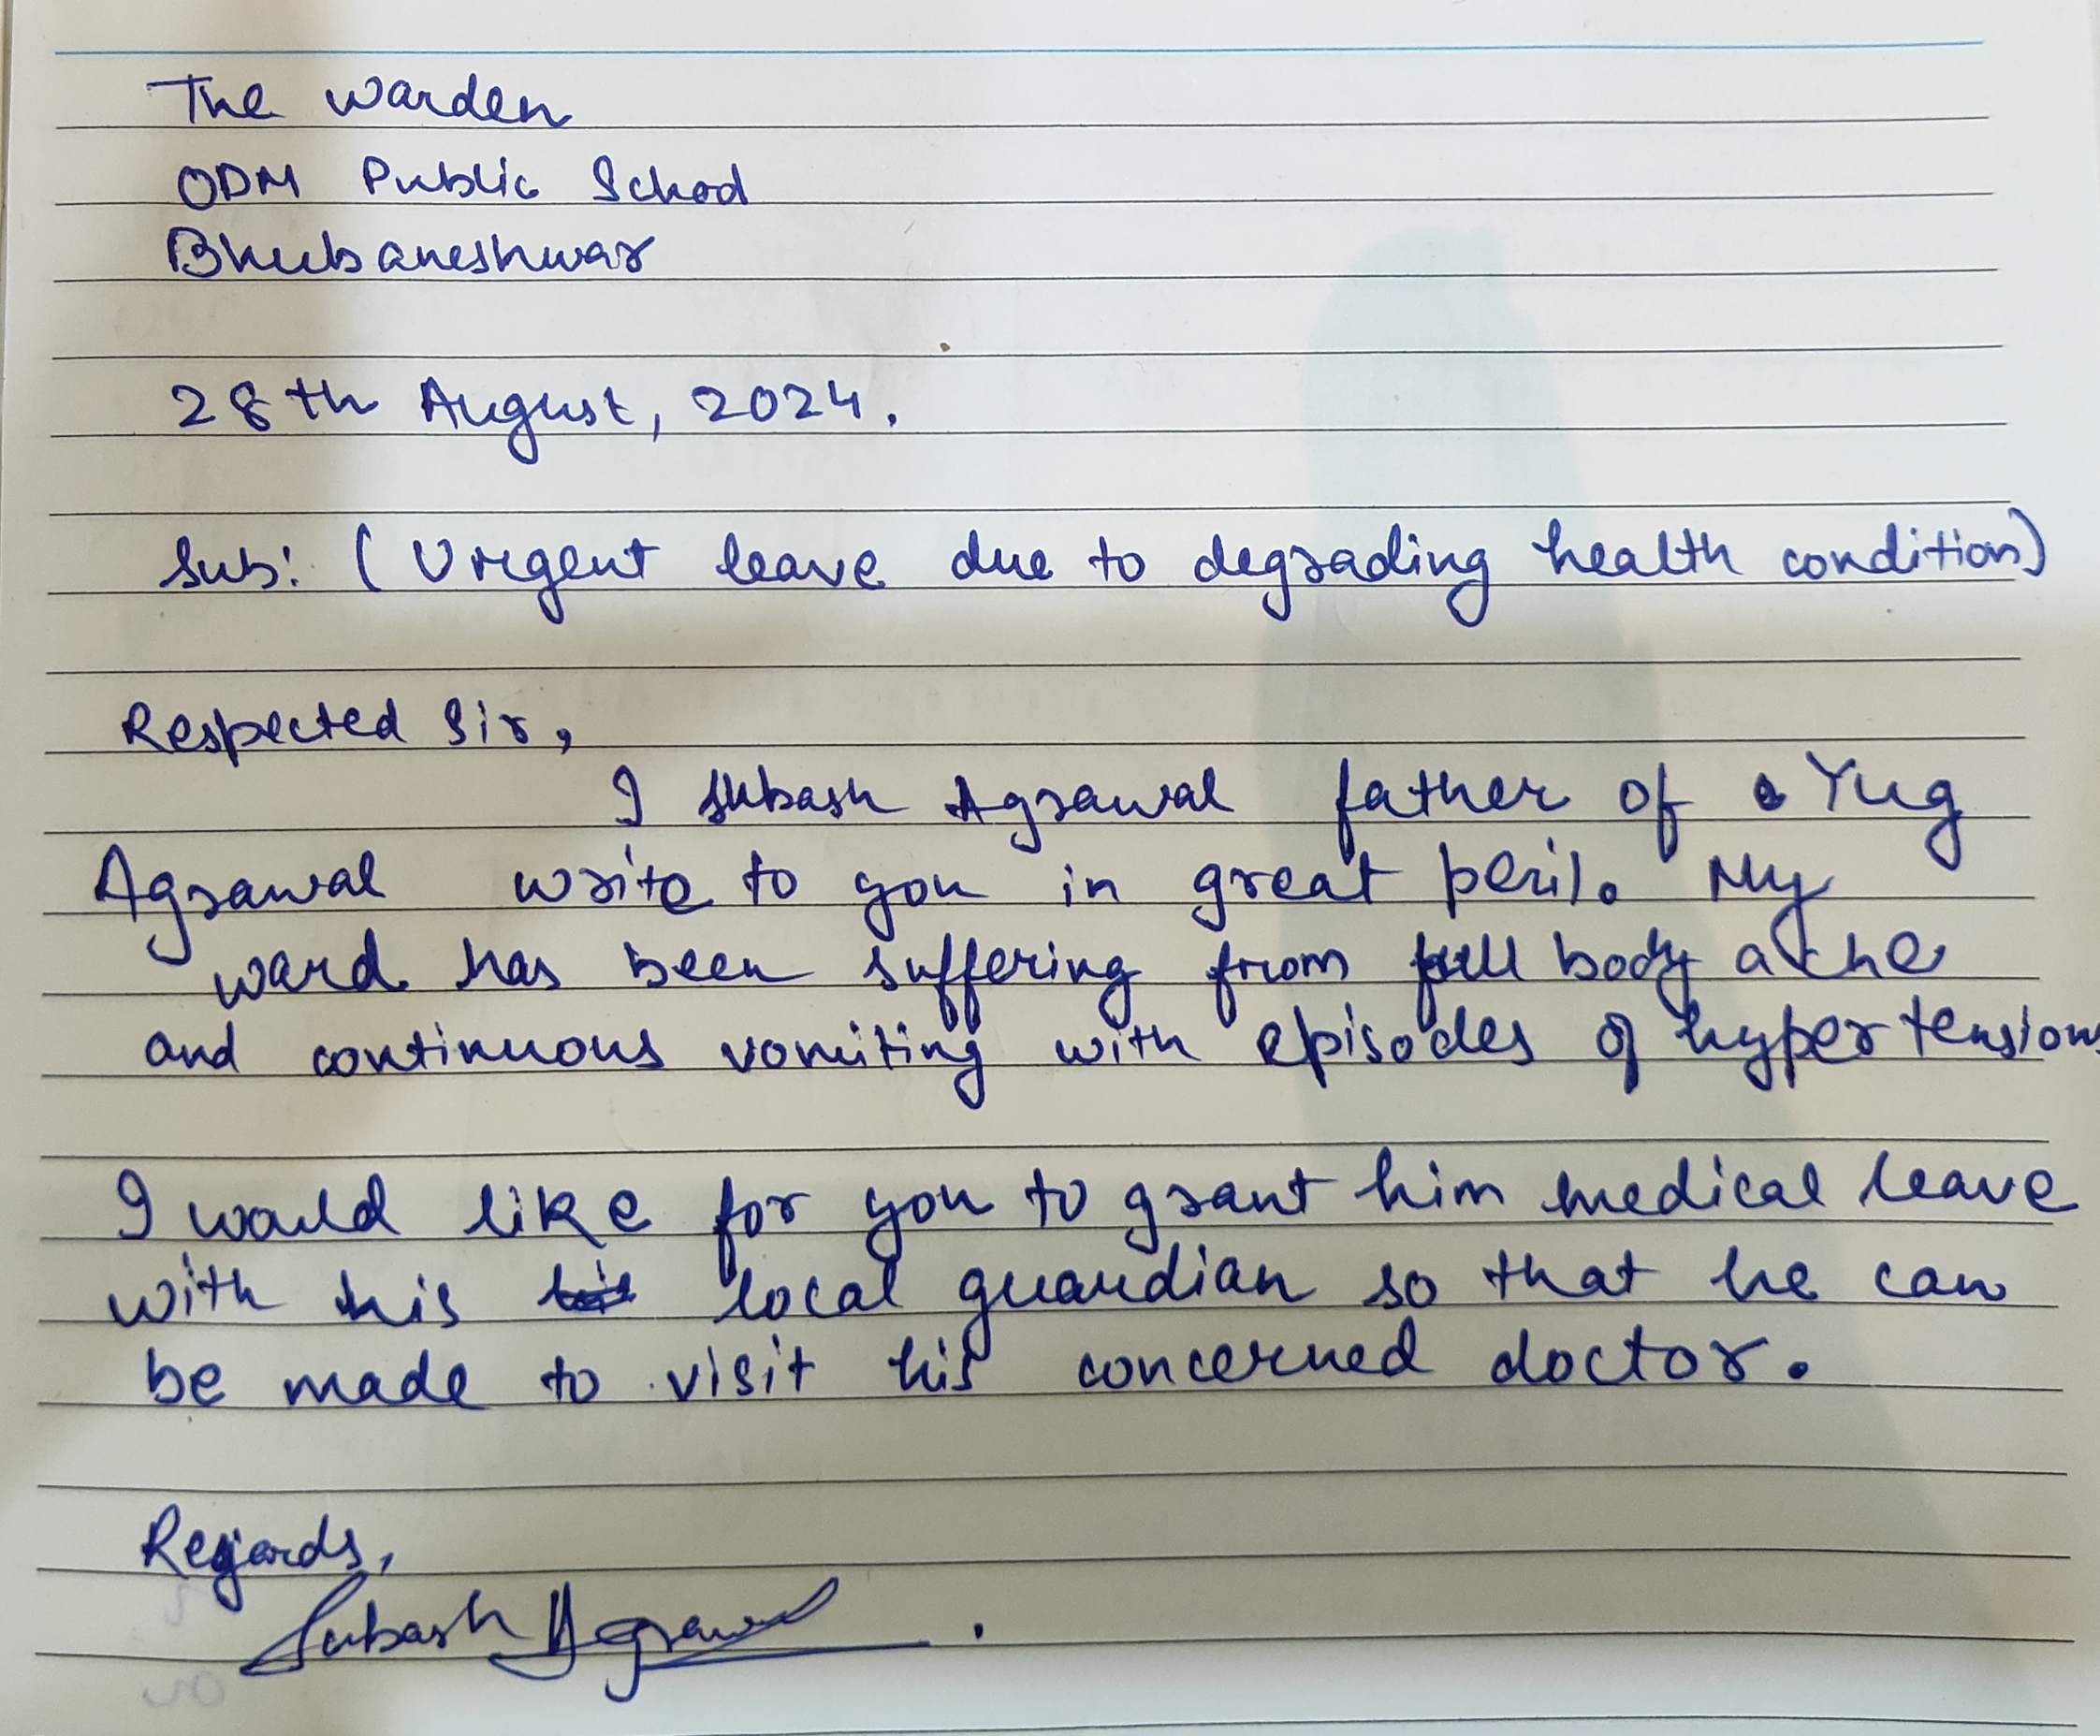 The Warden
ODM Public School
Bhubaneshwar
28th August, 2024.
Sub: (Urgent leave due to degrading health condition)
Respected Sir,
I Subash Agrawal father of Yug
Agrawal write to you in great peril. My
ward has been suffering from full body ache
and continuous vomiting with episodes of hypertension
I would like for you to grant him medical leave
with his local guardian so that he can
be made to visit his concerned doctor.
Regards,
Subash Agrawal.